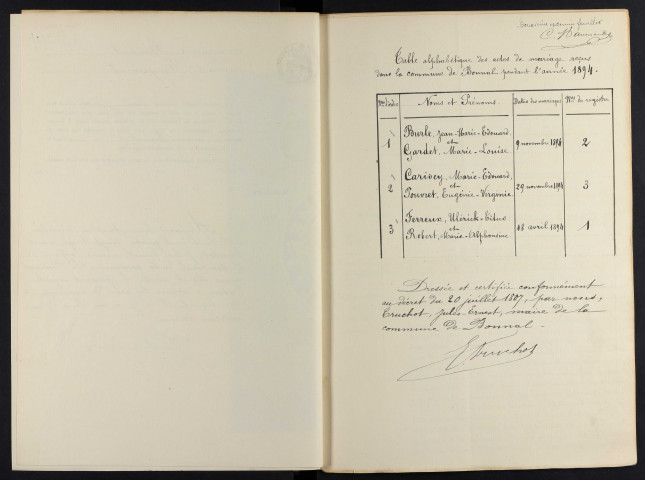 feuillet
Table alphabétique des actes de mariage reçus
dans la commune de Bonnal pendant l'année 1894.
Nos d'ordre Noms et Prénoms. Dates des mariages Nos du registre
1 Burle, Jean-Marie-Edouard, et Gardet, Marie-Louise 9 novembre 1894 2
2 Carisey, Marie-Edouard, et Pouvret, Eugénie-Virginie 29 novembre 1894 3
3 Ferreux, Ulérick-Titus et Robert, Marie-Alphonsine 18 avril 1894 1
Dressée et certifiée conformément
au décret du 20 juillet 1807, par nous,
Cruchot, Jules-Ernest, maire de la
commune de Bonnal.
E. Cruchot